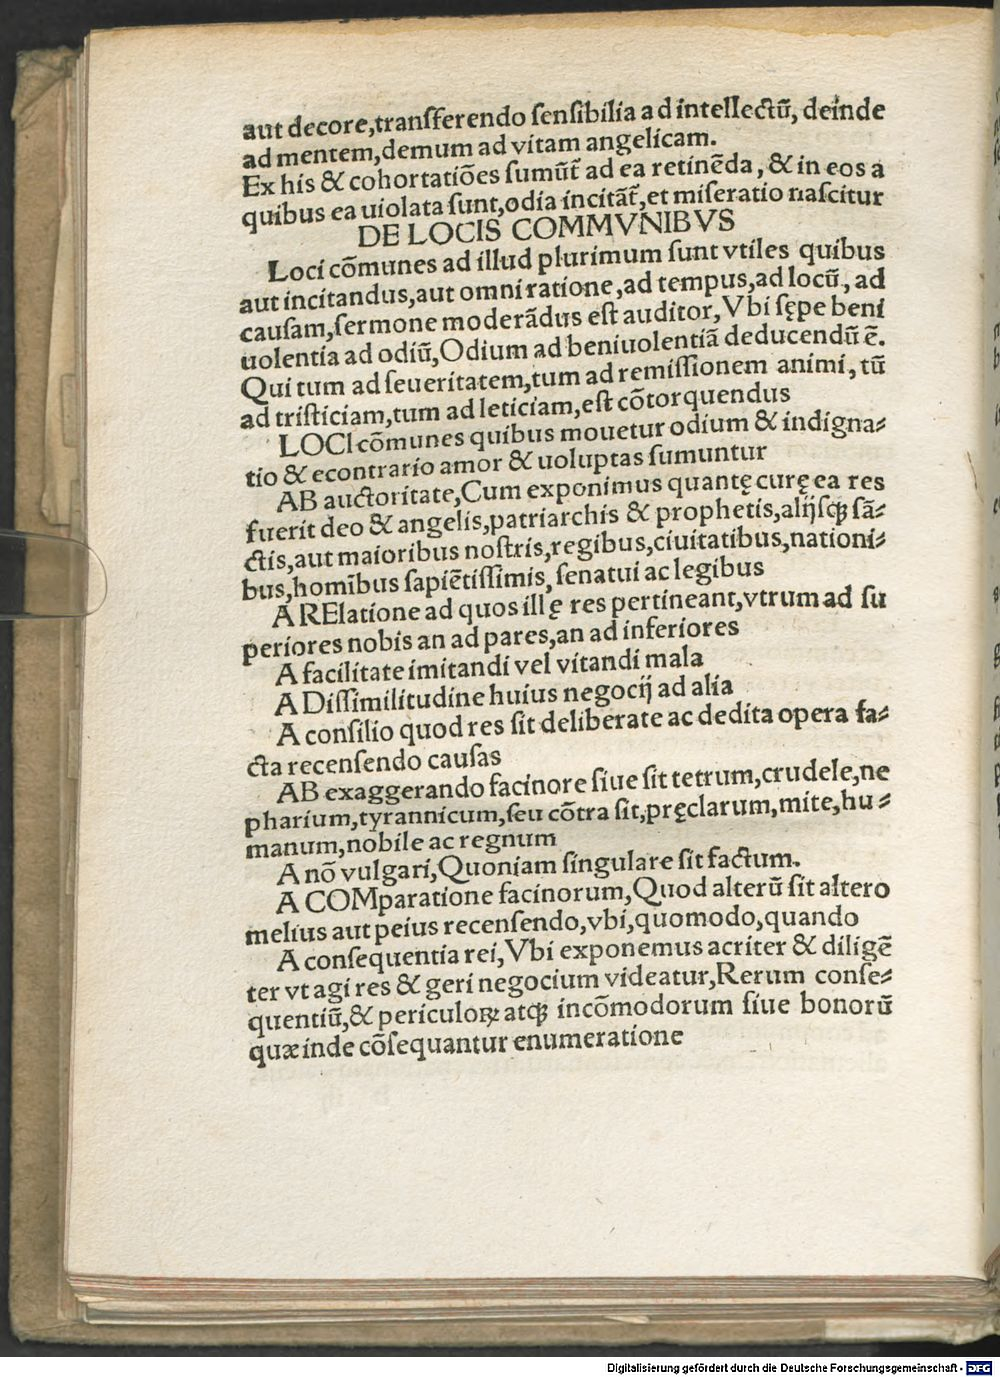 aut decore,transferendo sensibilia ad intellectū, deinde
ad mentem,demum ad vitam angelicam.
Ex his & cohortatiōes sumūt̄ ad ea retinēda, & in eos a
quibus ea uiolata sunt,odia incitāt̄,et miseratio nascitur
DE LOCIS COMMVNIBVS
Loci cōmunes ad illud plurimum sunt vtiles quibus
aut incitandus,aut omni ratione,ad tempus,ad locū, ad
causam,sermone moderādus est auditor,Vbi sępe beni
uolentia ad odiū,Odium ad beniuolentiā deducendū ē.
Qui tum ad seueritatem,tum ad remissionem animi, tū
ad tristiciam,tum ad leticiam,est cōtorquendus
LOCI cōmunes quibus mouetur odium & indigna⸗
tio & econtrario amor & uoluptas sumuntur
AB auctoritate,Cum exponimus quantę curę ea res
fuerit deo & angelis,patriarchis & prophetis,alijsqꝫ sā⸗
ctis,aut maioribus nostris,regibus,ciuitatibus,nationi⸗
bus,homībus sapiētissimis, senatui ac legibus
A RElatione ad quos illę res pertineant,vtrum ad su
periores nobis an ad pares,an ad inferiores
A facilitate imitandi vel vitandi mala
A Dissimilitudine huius negocij ad alia
A consilio quod res sit deliberate ac dedita opera fa⸗
cta recensendo causas
AB exaggerando facinore siue sit tetrum,crudele,ne
pharium,tyrannicum,seu cōtra sit,pręclarum,mite,hu⸗
manum,nobile ac regnum
A nō vulgari,Quoniam singulare sit factum.
A COMparatione facinorum,Quod alterū sit altero
melius aut peius recensendo,vbi,quomodo,quando
A consequentia rei,Vbi exponemus acriter & diligē
ter vt agi res & geri negocium videatur,Rerum conse⸗
quentiū,& periculoꝝ atqꝫ incōmodorum siue bonorū
quæ inde cōsequantur enumeratione
Digitalisierung gefördert durch die Deutsche Forschungsgemeinschaft - DFG